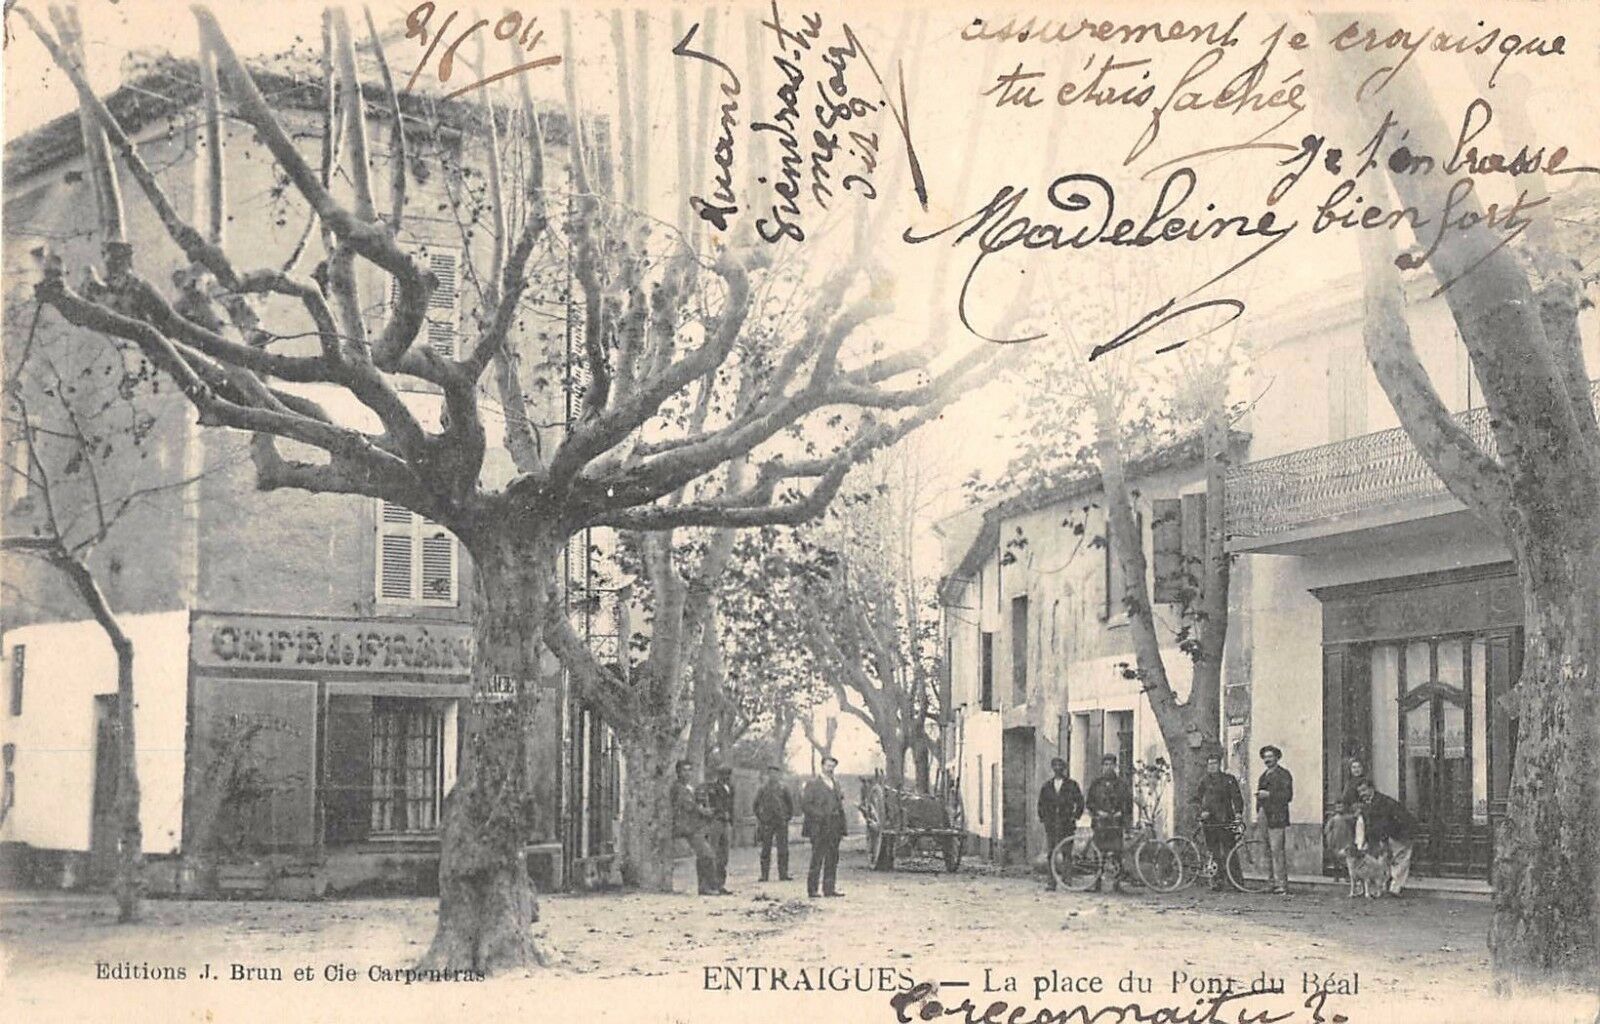 2/6 04
assurement je croyais que
tu étais fachée
je t'embrasse
bien fort
Madeleine
quand
viendras-tu
me voir
CAFÉ de FRAN
Editions J. Brun et Cie Carpentras
ENTRAIGUES. — La place du Pont du Béal